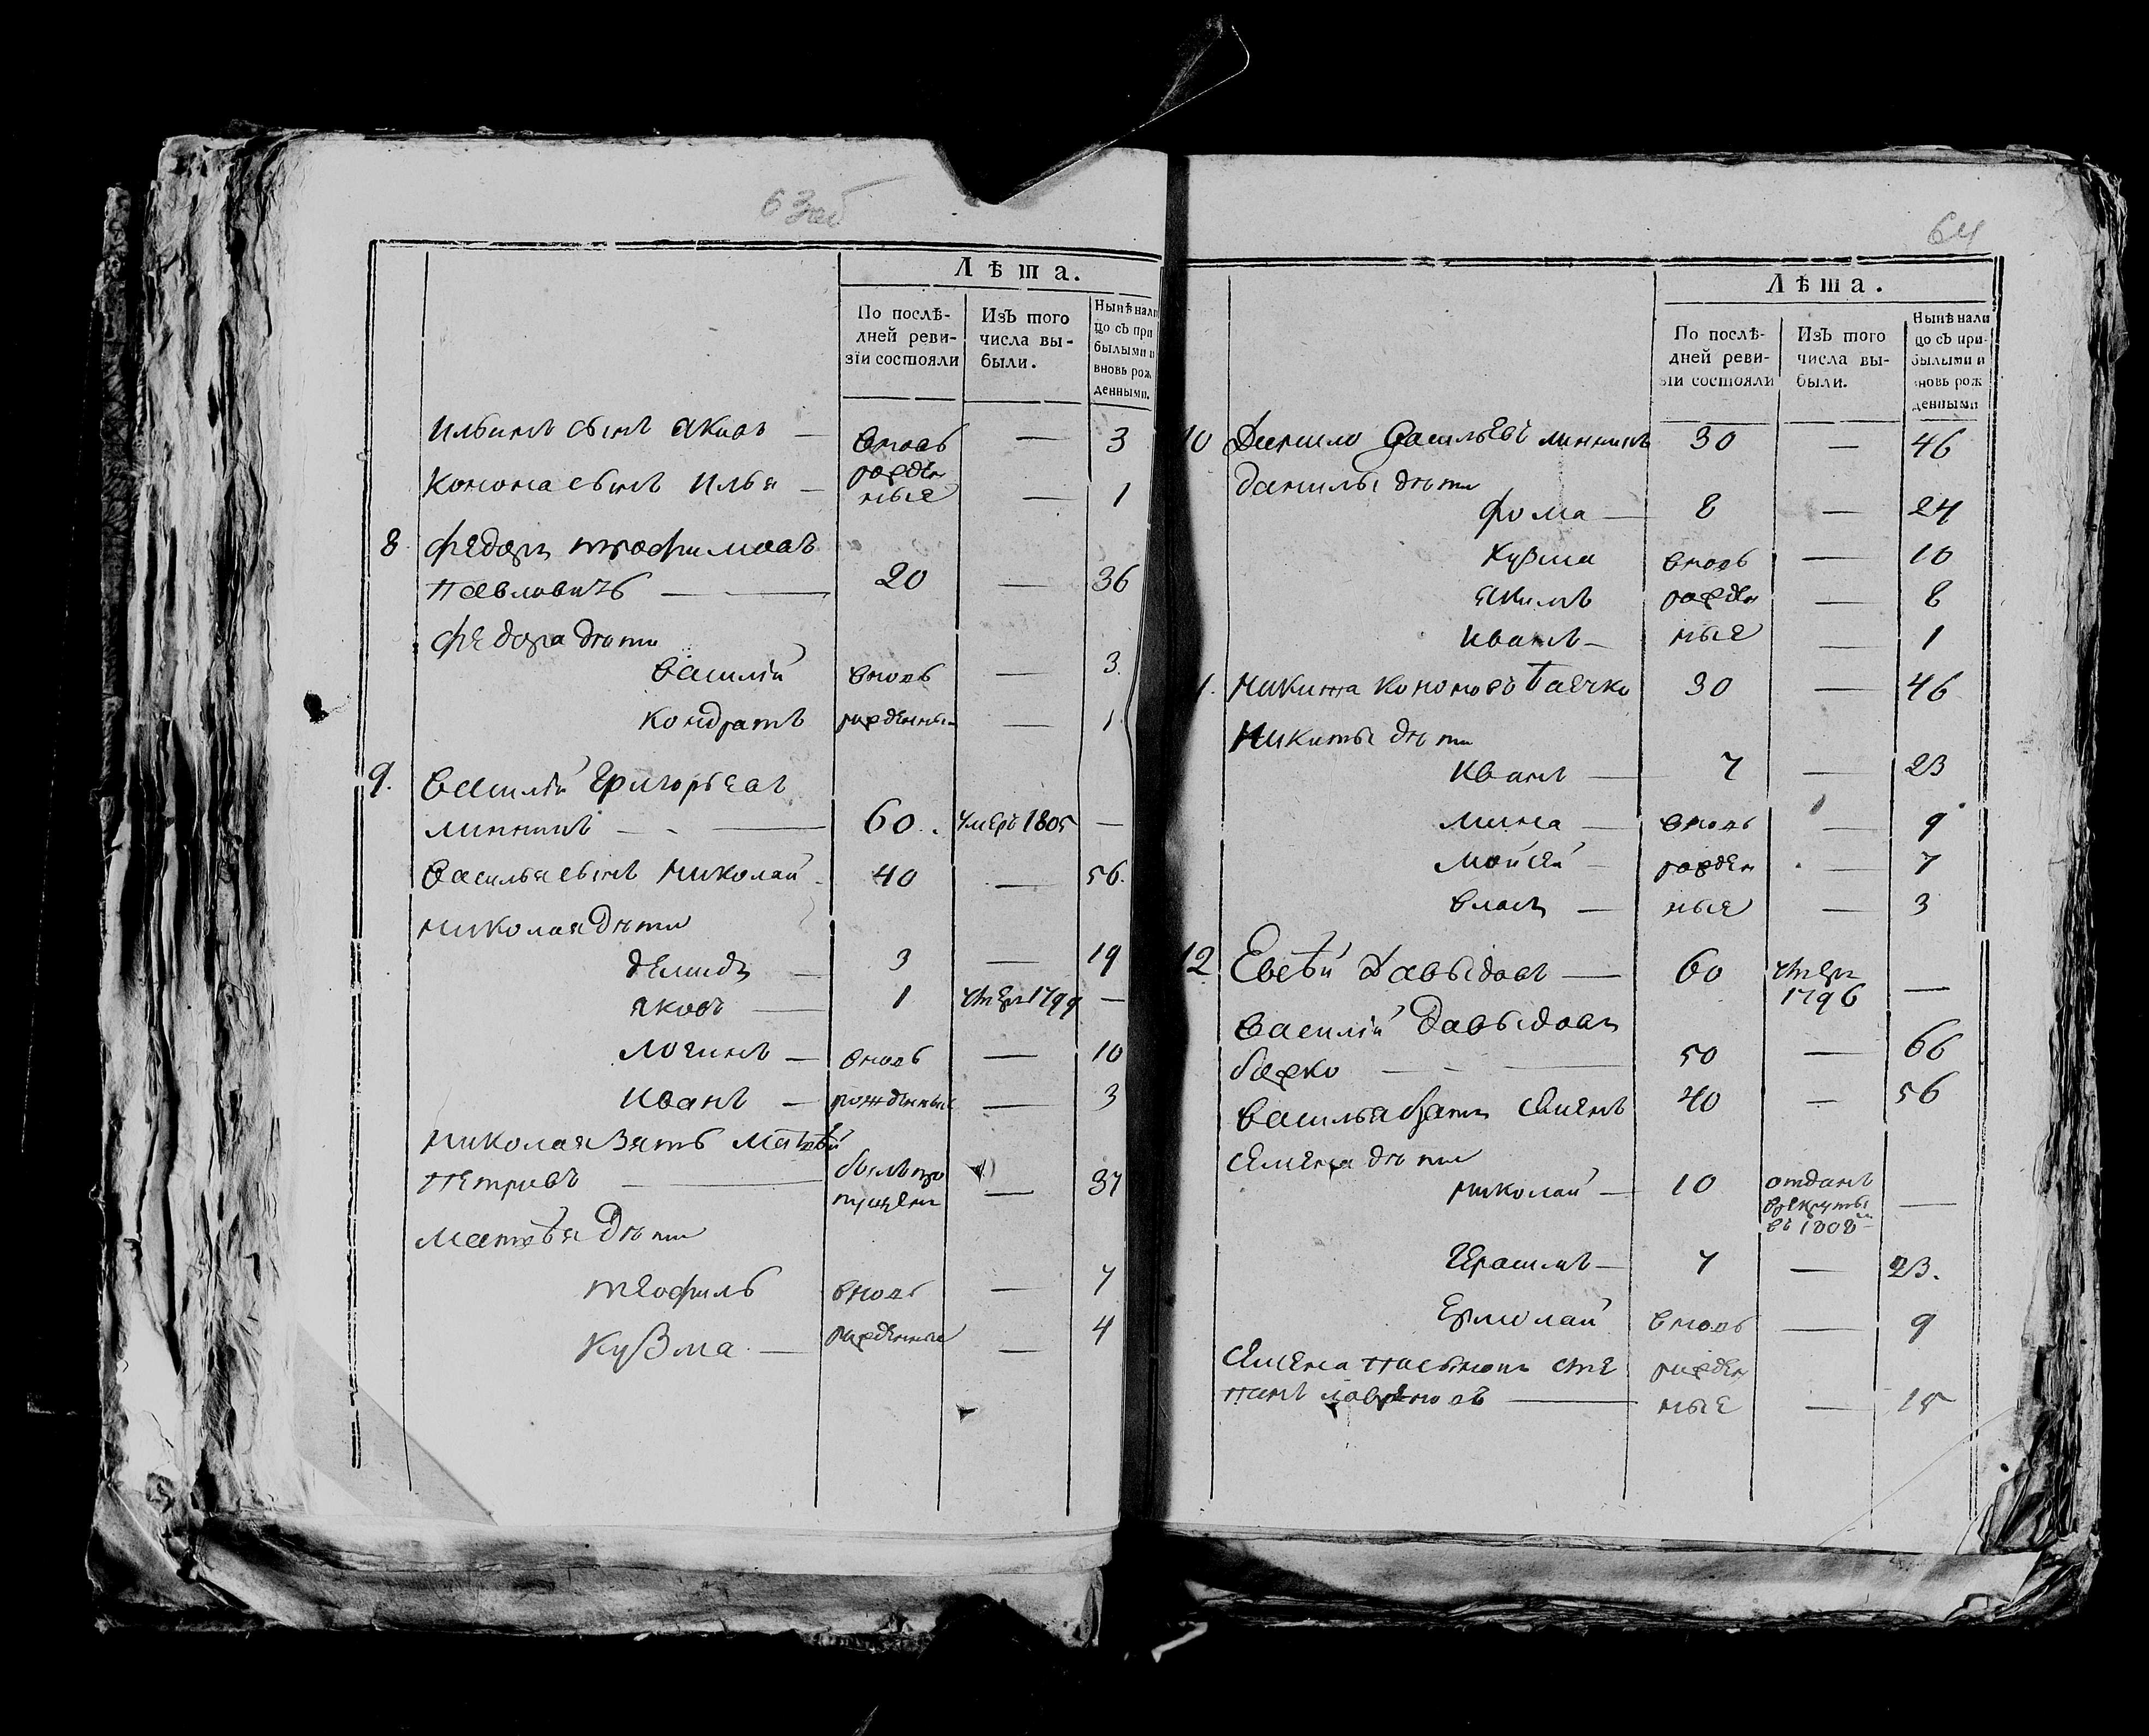 63 об
Лѣта.
По послѣ-
дней реви-
зїи состояли
Изъ того
числа вы-
были.
Нынѣ нали
цо съ при
былыми и
вновь рож
денными.
Ильинъ сынъ Яковъ — вновь — 3
рожден
Конона сынъ Илья — ные — 1
8. Федоръ трофимовъ
Павловичь — 20 — 36
Федора дѣти
Василїй вновь — 3.
Кондратъ рожденные — 1
9. Василїй Григорьевъ
линникъ — 60. умеръ 1805 —
Василья сынъ Николай 40 — 56.
Николая дѣти
Демидъ — 3 — 19
Яковъ — 1 умеръ 1799 —
Логинъ — вновь — 10
Иванъ — рожденные — 3
Николая зять Матвѣй
Петровъ — былъ про — 37
пущенъ
Матвѣя дѣти
теофиль вновь — 7
Кузма — рожденные — 4
64
Лѣта.
По послѣ-
дней реви-
зїи состояли
Изъ того
числа вы-
были.
Нынѣ нали
цо съ при-
былыми и
вновь рож
денными
10 Данило Васильевъ линникъ 30 — 46
Данилы дѣти
Фома — 8 — 24
Кузма вновь — 10
Якимъ рожден — 8
Иванъ — ные — 1
1. Никита Кононовъ 30 — 46
Никиты дѣти
Иванъ — 7 — 23
Мина — вновь — 9
Мойсей — рожден — 7
Власъ — ные — 3
12 Евсѣй Давыдовъ — 60 умеръ
1796 —
Василїй Давыдовъ
божко — 50 — 66
Василья братъ Семенъ 40 — 56
Семена дѣти
Николай — 10 отданъ —
в рекруты
въ 1808м
Герасимъ — 7 — 23.
Ермолай вновь — 9
Семена пасынокъ Сте рожден
панъ — ные — 15